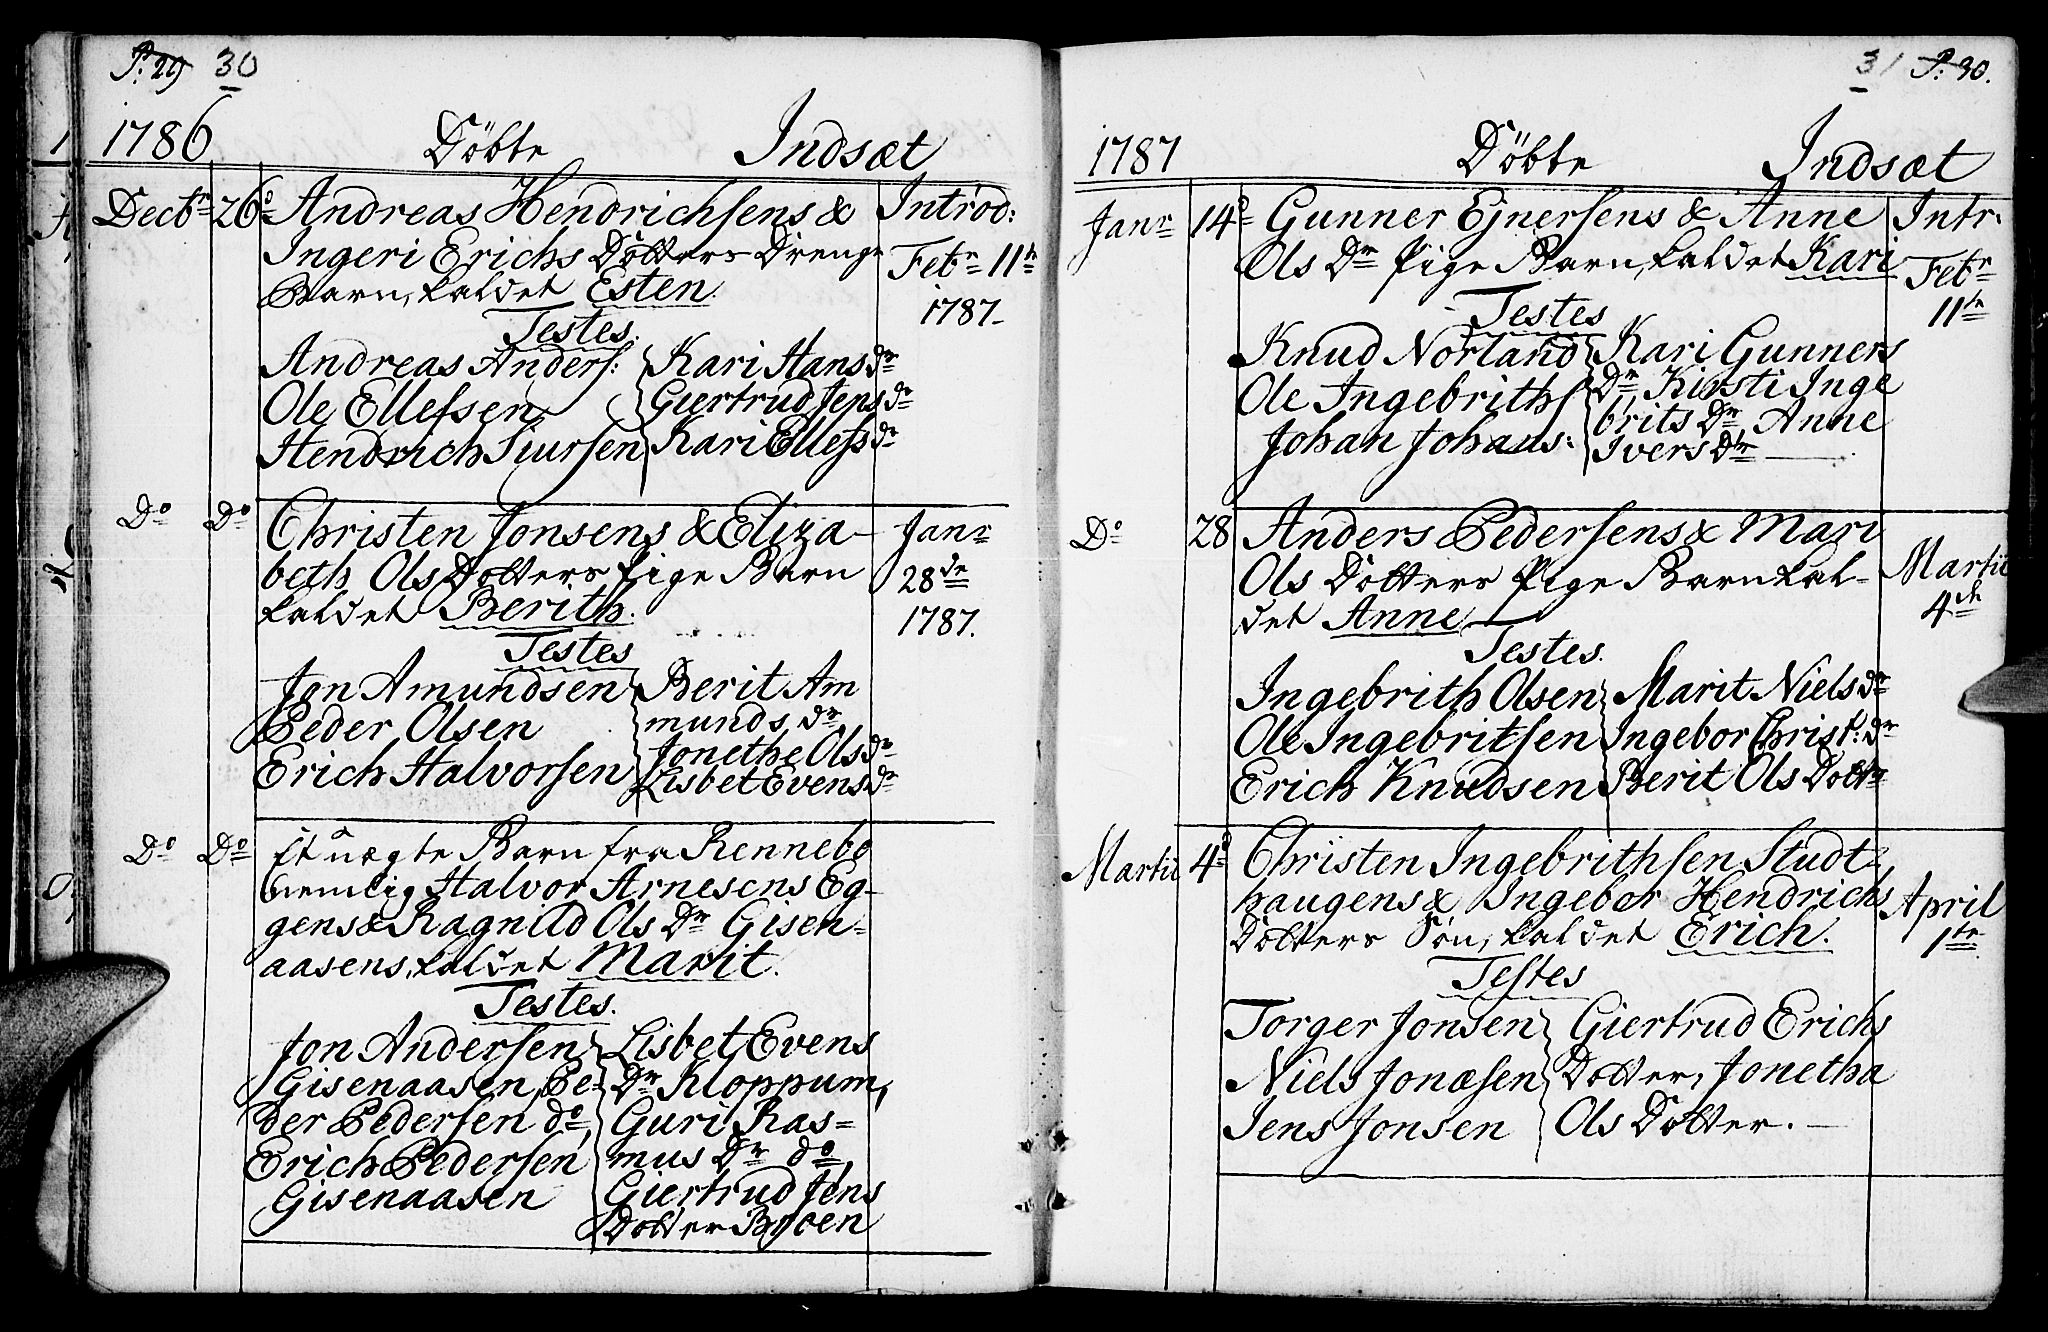 P: 29 30
1786 Döbte Indsæt
Decbr 26d Andreas Hendrichsens & Introd:
Ingeri Erichs Dotters Drenge Febr 11te
Barn, kaldet Esten. 1787-
Testes.
Andreas Anders: Kari Hans dr
Ole Ellefsen Giertrud Jens dr
Hendrich Siursen Kari Ellefs dr
Do Do Christen Jonsens & Eliza- Janr
beth Ols Dotters Pige Barn 28de
kaldet Berith. 1787.
Testes
Jon Amundsen Berit Am
Peder Olsen munds dr
Jonethe Ols dr
Erich Halvorsen Lisbet Evens dr
Do Do Et uægte Barn fra Rennebo
nemlig Halvor Arnesens Eg-
gens & Ragnild Ols Dr Gisen-
aasens, kaldet Marit.
Testes.
Jon Andersen Lisbet Evens
Gisenaasen, Pe- Dr Kloppum,
der Pedersen do, Guri Ras-
Erich Pedersen mus Dr do,
Gisenaasen Giertrud Jens
Dotter Bröen
31 P: 30.
1787 Döbte Indsæt
Janr 14d Gunner Ejnersens & Anne Intr:
Ols Dr Pige Barn, kaldet Kari Febr
Testes 11te
Knud Norland Kari Gunners
Ole Ingebriths Dr, Kirsti Inge
Johan Johans: brits Dr, Anne
Ivers Dr
Do 28 Anders Pedersens & Mari
Ols Dotters Pige Barn kal- Martii
det Anne 4de
Testes.
Ingebrith Olsen Marit Niels dr
Ole Ingebritsen Ingebor Christ: dr
Erich Knudsen Berit Ols Dottr
Martii 4d Christen Ingebrithsen Studt-
haugens & Ingebor Hendrichs April
Dotters Søn, kaldet Erich. 1te
Testes
Torger Jonsen Giertrud Erichs
Niels Jonæsen Dotter, Jonetha
Jens Jonsen Ols Dotter.